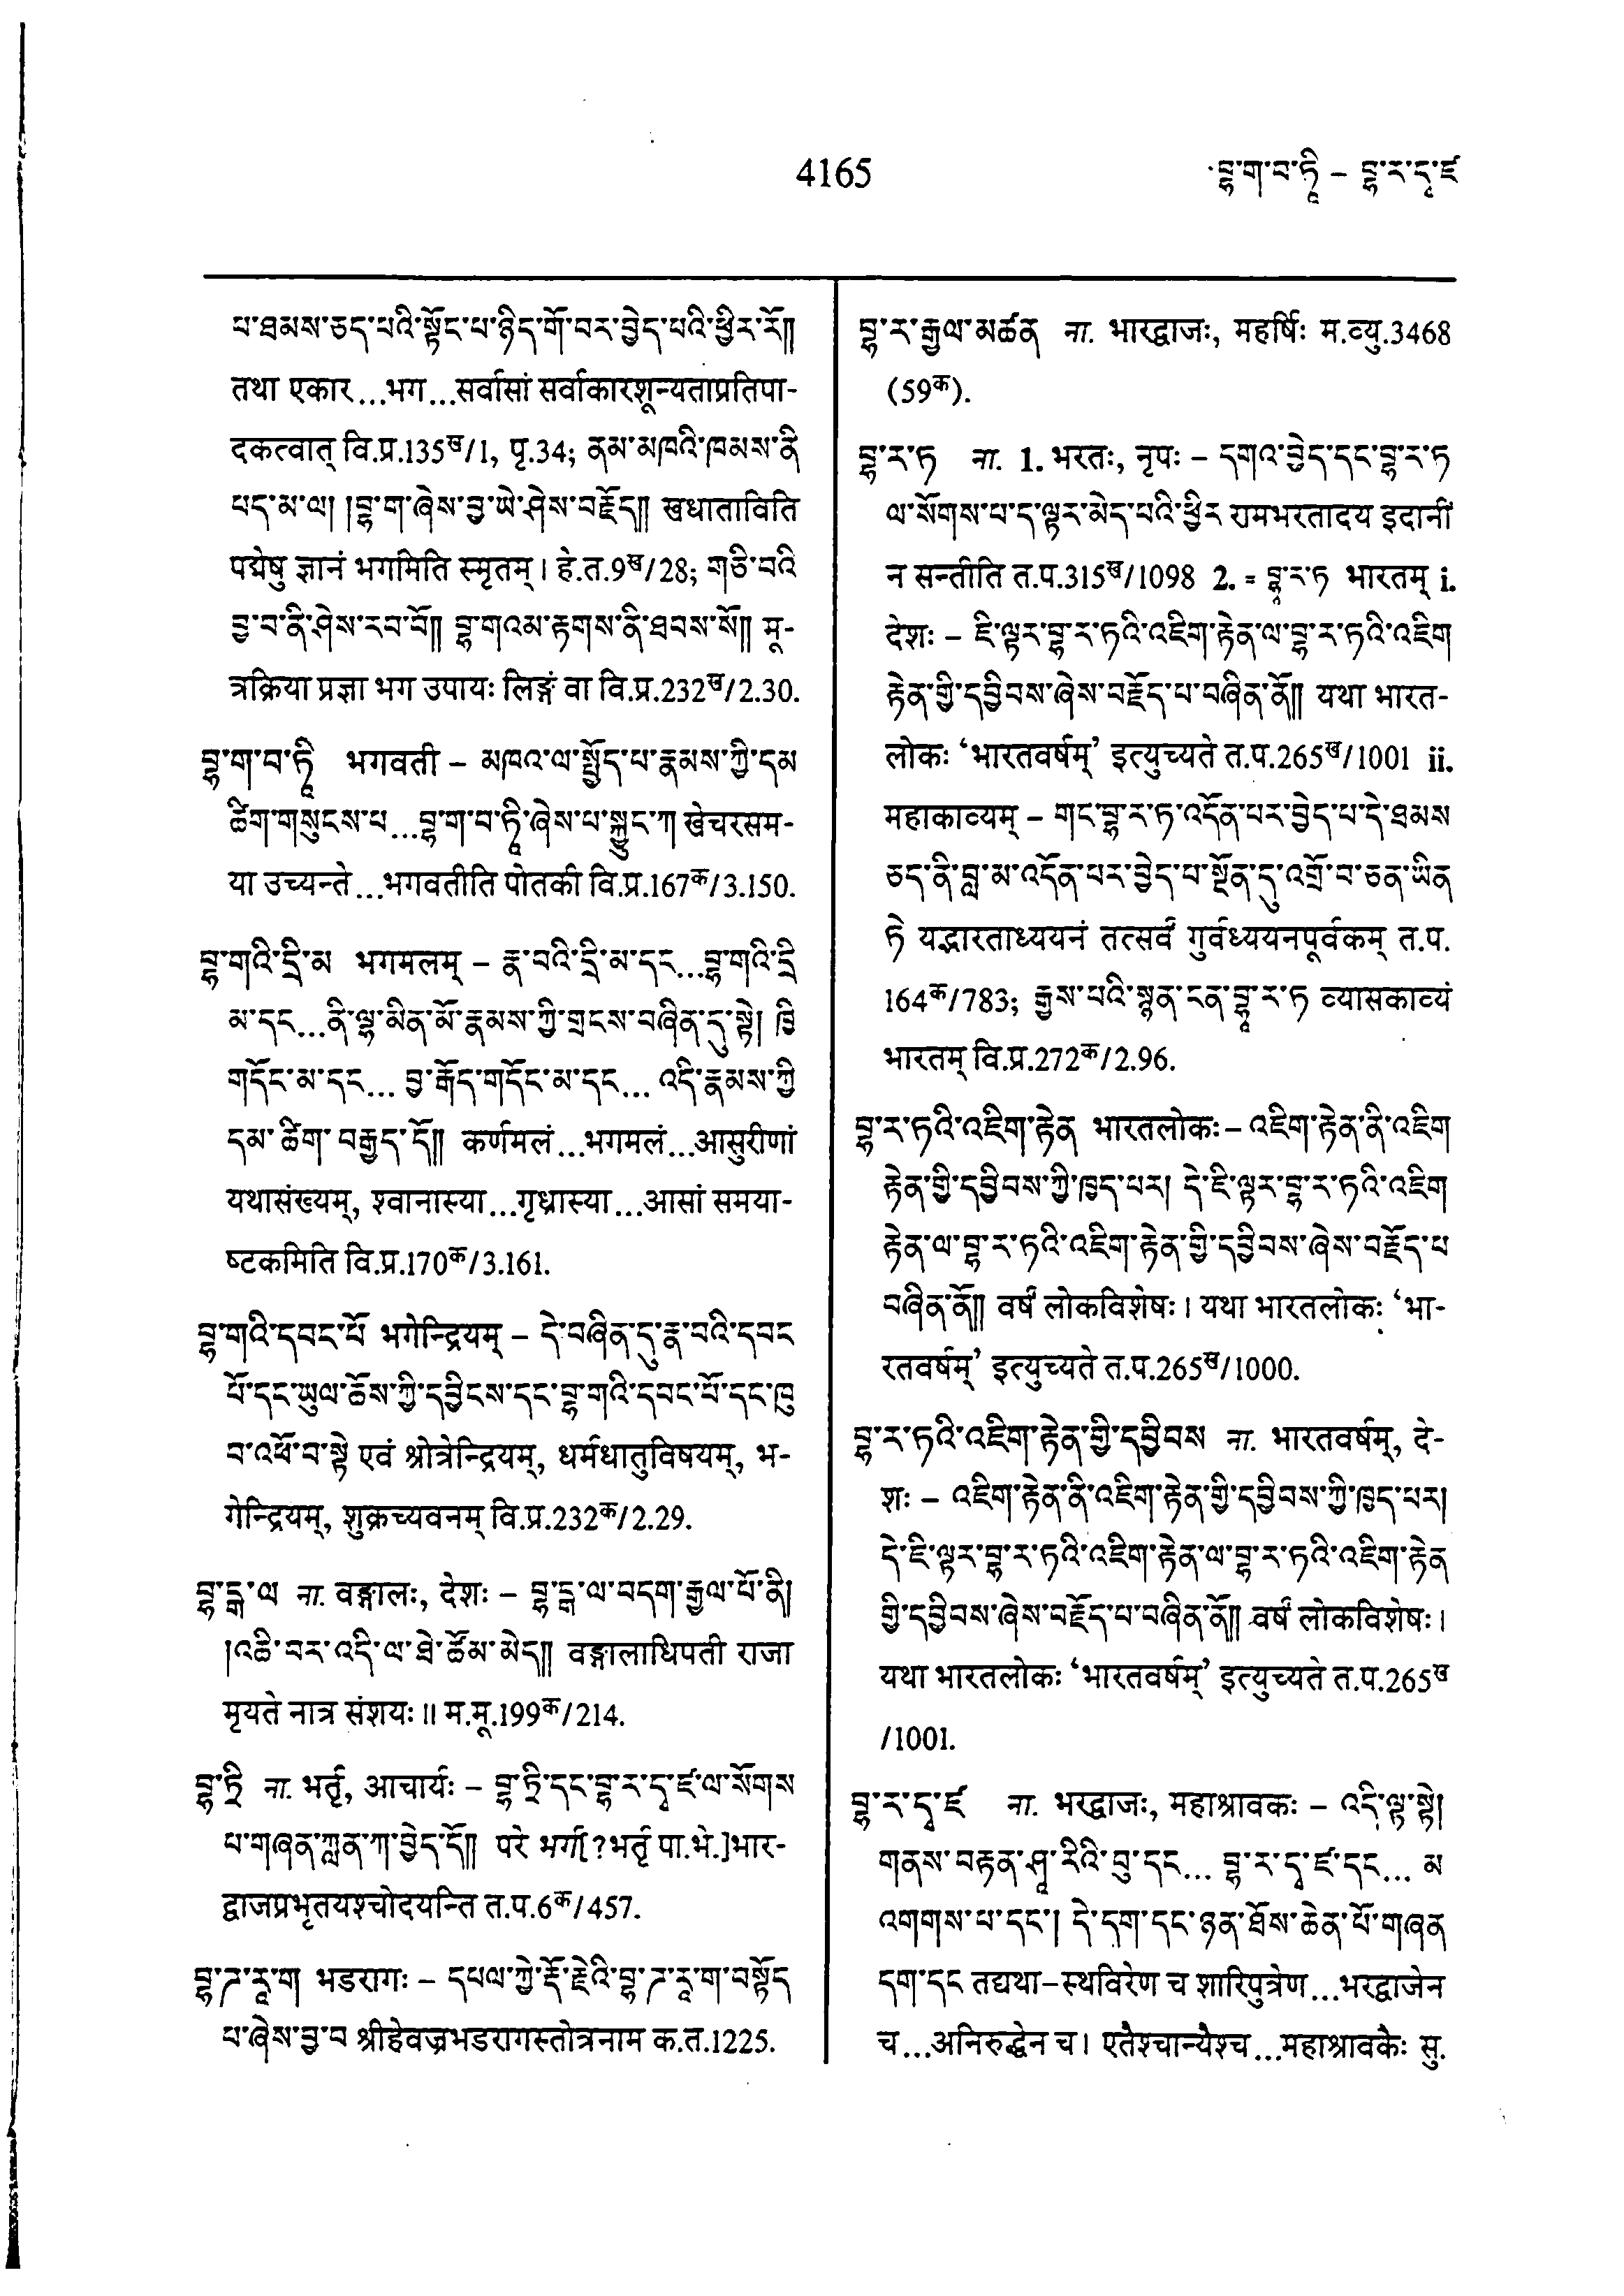 4165
བྷ་ག་བ་ཏཱི – བྷ་ར་དྭ་ཛ
པ་ཐམས་ཅད་པའི་སྟོང་པ་ཉིད་གོ་བར་བྱེད་པའི་ཕྱིར་རོ༎
तथा एकार...भग...सर्वासां सर्वाकारशून्यताप्रतिपा-
दकत्वात् वि.प्र.135ख/1, पृ.34; ནམ་མཁའི་ཁམས་ནི
པད་མ་ལ། །བྷ་ག་ཞེས་བྱ་ཡེ་ཤེས་བརྗོད༎ खधाताविति
पद्मेषु ज्ञानं भगमिति स्मृतम्। हे.त.9ख/28; གཅི་བའི
བྱ་བ་ནི་ཤེས་རབ་བོ༎ བྷ་གའམ་རྟགས་ནི་ཐབས་སོ༎ मू-
त्रक्रिया प्रज्ञा भग उपायः लिङ्गं वा वि.प्र.232ख/2.30.
བྷ་ག་བ་ཏཱི भगवती – མཁའ་ལ་སྤྱོད་པ་རྣམས་ཀྱི་དམ
ཚིག་གསུངས་པ...བྷ་ག་བ་ཏཱི་ཞེས་པ་སྐྱུང་ཀ खेचरसम-
या उच्यन्ते...भगवतीति पोतकी वि.प्र.167क/3.150.
བྷ་གའི་དྲི་མ भगमलम् – རྣ་བའི་དྲི་མ་དང...བྷ་གའི་དྲི
མ་དང...ནི་ལྷ་མིན་མོ་རྣམས་ཀྱི་གྲངས་བཞིན་དུ་སྟེ། ཁྱི
གདོང་མ་དང... བྱ་རྒོད་གདོང་མ་དང... འདི་རྣམས་ཀྱི
དམ་ཚིག་ བརྒྱད་དོ༎ कर्णमलं...भगमलं...आसुरीणां
यथासंख्यम्, श्वानास्या...गृध्रास्या...आसां समया-
ष्टकमिति वि.प्र.170क/3.161.
བྷ་གའི་དབང་པོ भगेन्द्रियम् – དེ་བཞིན་དུ་རྣ་བའི་དབང
པོ་དང་ཡུལ་ཆོས་ཀྱི་དབྱིངས་དང་བྷ་གའི་དབང་པོ་དང་ཁུ
བ་འཕོ་བ་སྟེ एवं श्रोत्रेन्द्रियम्, धर्मधातुविषयम्, भ-
गेन्द्रियम्, शुक्रच्यवनम् वि.प्र.232क/2.29.
བྷ་དྒ་ལ ना. वङ्गालः, देशः – བྷ་དྒ་ལ་བདག་རྒྱལ་པོ་ནི།
།འཆི་བར་འདི་ལ་ཐེ་ཚོམ་མེད༎ वङ्गालाधिपती राजा
मृयते नात्र संशयः॥ म.मू.199क/214.
བྷ་ཏྲི ना. भर्तृ, आचार्यः – བྷ་ཏྲི་དང་བྷ་ར་དྭ་ཛ་ལ་སོགས
པ་གཞན་ཀླན་ཀ་བྱེད་དོ༎ परे भर्ग[?भर्तृ पा.भे.]भार-
द्वाजप्रभृतयश्चोदयन्ति त.प.6क/457.
བྷ་ཌ་རཱ་ག भडरागः – དཔལ་ཀྱེ་རྡོ་རྗེའི་བྷ་ཌ་རཱ་ག་བསྟོད
པ་ཞེས་བྱ་བ श्रीहेवज्रभडरागस्तोत्रनाम क.त.1225.
བྷ་ར་རྒྱལ་མཚན ना. भारद्वाजः, महर्षिः म.व्यु.3468
(59क).
བྷ་ར་ཏ ना. 1. भरतः, नृपः – དགའ་བྱེད་དང་བྷ་ར་ཏ
ལ་སོགས་པ་ད་ལྟར་མེད་པའི་ཕྱིར रामभरतादय इदानीं
न सन्तीति त.प.315ख/1098 2. = བྷཱ་ར་ཏ भारतम् i.
देशः – ཇི་ལྟར་བྷ་ར་ཏའི་འཇིག་རྟེན་ལ་བྷ་ར་ཏའི་འཇིག
རྟེན་གྱི་དབྱིབས་ཞེས་བརྗོད་པ་བཞིན་ནོ༎ यथा भारत-
लोकः ‘भारतवर्षम्’ इत्युच्यते त.प.265ख/1001 ii.
महाकाव्यम् – གང་བྷ་ར་ཏ་འདོན་པར་བྱེད་པ་དེ་ཐམས
ཅད་ནི་བླ་མ་འདོན་པར་བྱེད་པ་སྔོན་དུ་འགྲོ་བ་ཅན་ཡིན
ཏེ यद्भारताध्ययनं तत्सर्वं गुर्वध्ययनपूर्वकम् त.प.
164क/783; རྒྱས་པའི་སྙན་ངན་བྷཱ་ར་ཏ व्यासकाव्यं
भारतम् वि.प्र.272क/2.96.
བྷ་ར་ཏའི་འཇིག་རྟེན भारतलोकः – འཇིག་རྟེན་ནི་འཇིག
རྟེན་གྱི་དབྱིབས་ཀྱི་ཁྱད་པར། དེ་ཇི་ལྟར་བྷ་ར་ཏའི་འཇིག
རྟེན་ལ་བྷ་ར་ཏའི་འཇིག་རྟེན་གྱི་དབྱིབས་ཞེས་བརྗོད་པ
བཞིན་ནོ༎ वर्षं लोकविशेषः। यथा भारतलोकः ‘भा-
रतवर्षम्’ इत्युच्यते त.प.265ख/1000.
བྷ་ར་ཏའི་འཇིག་རྟེན་གྱི་དབྱིབས ना. भारतवर्षम्, दे-
शः – འཇིག་རྟེན་ནི་འཇིག་རྟེན་གྱི་དབྱིབས་ཀྱི་ཁྱད་པར།
དེ་ཇི་ལྟར་བྷ་ར་ཏའི་འཇིག་རྟེན་ལ་བྷ་ར་ཏའི་འཇིག་རྟེན
གྱི་དབྱིབས་ཞེས་བརྗོད་པ་བཞིན་ནོ༎ वर्षं लोकविशेषः।
यथा भारतलोकः ‘भारतवर्षम्’ इत्युच्यते त.प.265ख
/1001.
བྷ་ར་དྭ་ཛ ना. भरद्वाजः, महाश्रावकः – འདི་ལྟ་སྟེ།
གནས་བརྟན་ཤཱ་རིའི་བུ་དང... བྷ་ར་དྭ་ཛ་དང... མ
འགགས་པ་དང་། དེ་དག་དང་ཉན་ཐོས་ཆེན་པོ་གཞན
དག་དང तद्यथा–स्थविरेण च शारिपुत्रेण...भरद्वाजेन
च...अनिरुद्धेन च। एतैश्चान्यैश्च...महाश्रावकैः सु.